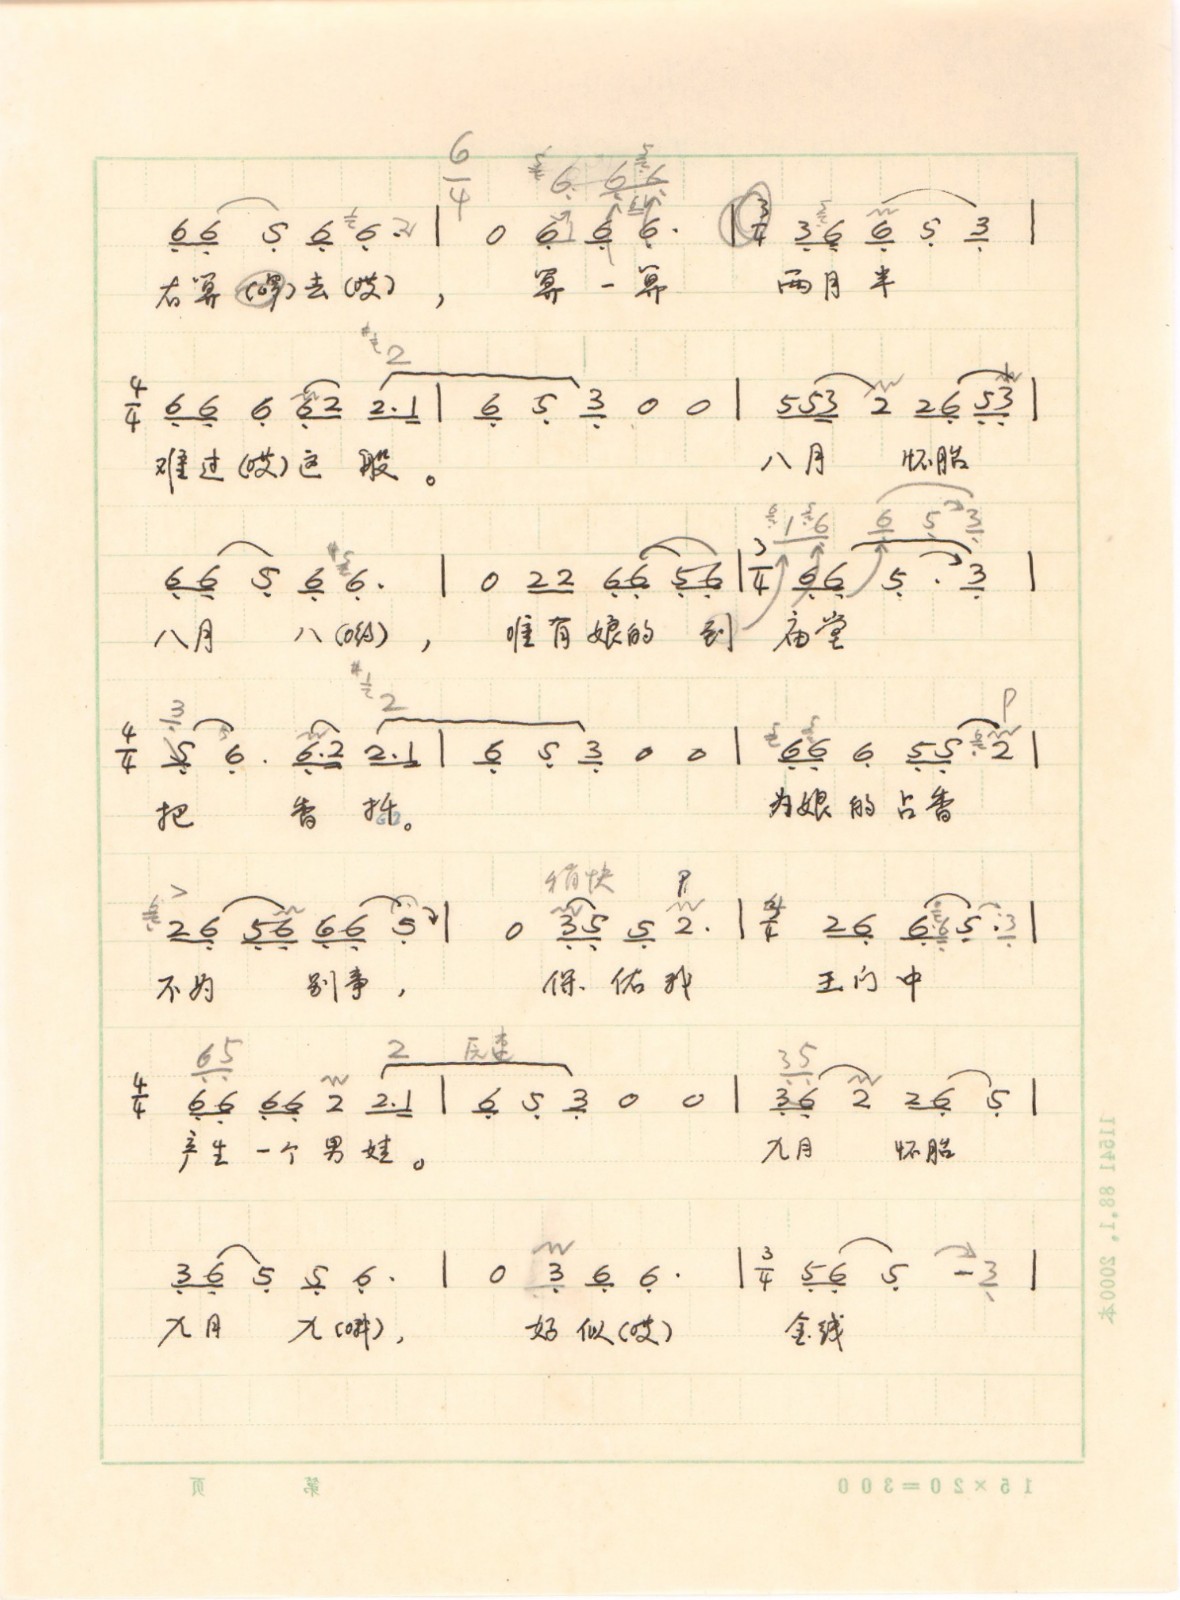 6/4
6 6 5 6 6 · 2 | 0 6 6 6 · | 3/4 3 6 6 5 3 |
右算(啰)去(哎), 算一算 两月半
2
4/4 6 6 6 6 2 2·1 | 6 5 3 0 0 | 5 5 3 2 2 6 5 3 |
难过(哎)这 股。 八月 怀胎
1 6 6 5 3
6 6 5 6 6 · | 0 2 2 6 6 5 6 | 3/4 6 6 5 · 3 |
八月 八(哟), 唯有娘的 到 庙堂
2 P
3
4/4 5 6 · 6·2 2·1 | 6 5 3 0 0 | 6 6 6 5 5 2 |
把 香 拆。 为娘的占香
稍快 P
2 6 5 6 6 6 5 | 0 3 5 5 2 · | 4/4 2 6 6 5 · 3 |
不为 别事, 保佑我 王门中
6 5 2 反速 3 5
4/4 6 6 6 6 2 2·1 | 6 5 3 0 0 | 3 6 2 2 6 5 |
产生一个男娃。 九月 怀胎
3 6 5 5 6 · | 0 3 6 6 · | 3/4 5 6 5 - 3 |
九月 九( ), 好似(哎) 金线
15×20=300
第 页
11541 88.1. 2000本